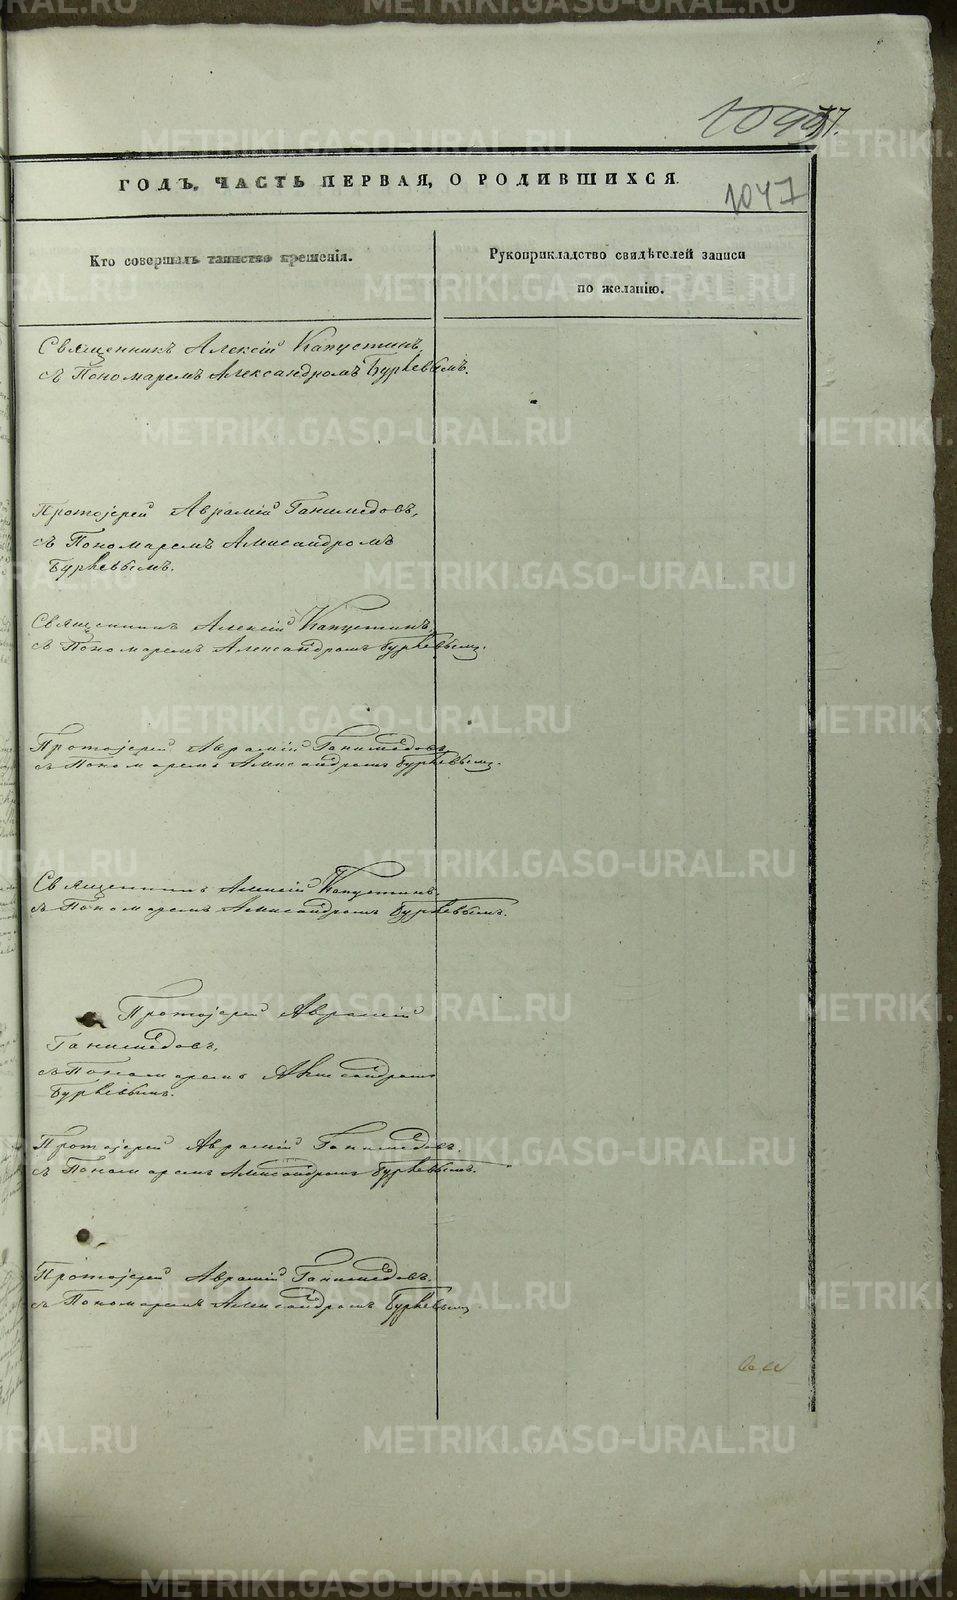 1047
ГОДЪ, ЧАСТЬ ПЕРВАЯ, О РОДИВШИХСЯ.
Кто совершалъ таинство крещенія.
Рукоприкладство свидѣтелей записи
по желанію.
Священникъ Алексій Капустинъ,
съ Пономаремъ Александромъ Буркевымъ.
Протоіерей Аврамій Ганимедовъ,
съ Пономаремъ Александромъ
Буркевымъ.
Священникъ Алексій Капустинъ,
съ Пономаремъ Александромъ Буркевымъ.
Протоіерей Аврамій Ганимедовъ,
съ Пономаремъ Александромъ Буркевымъ.
Священникъ Алексій Капустинъ,
съ Пономаремъ Александромъ Буркевымъ.
Протоіерей Аврамій
Ганимедовъ,
съ Пономаремъ Александромъ
Буркевымъ.
Протоіерей Аврамій Ганимедовъ,
съ Пономаремъ Александромъ Буркевымъ.
Протоіерей Аврамій Ганимедовъ,
съ Пономаремъ Александромъ Буркевымъ.
METRIKI.GASO-URAL.RU